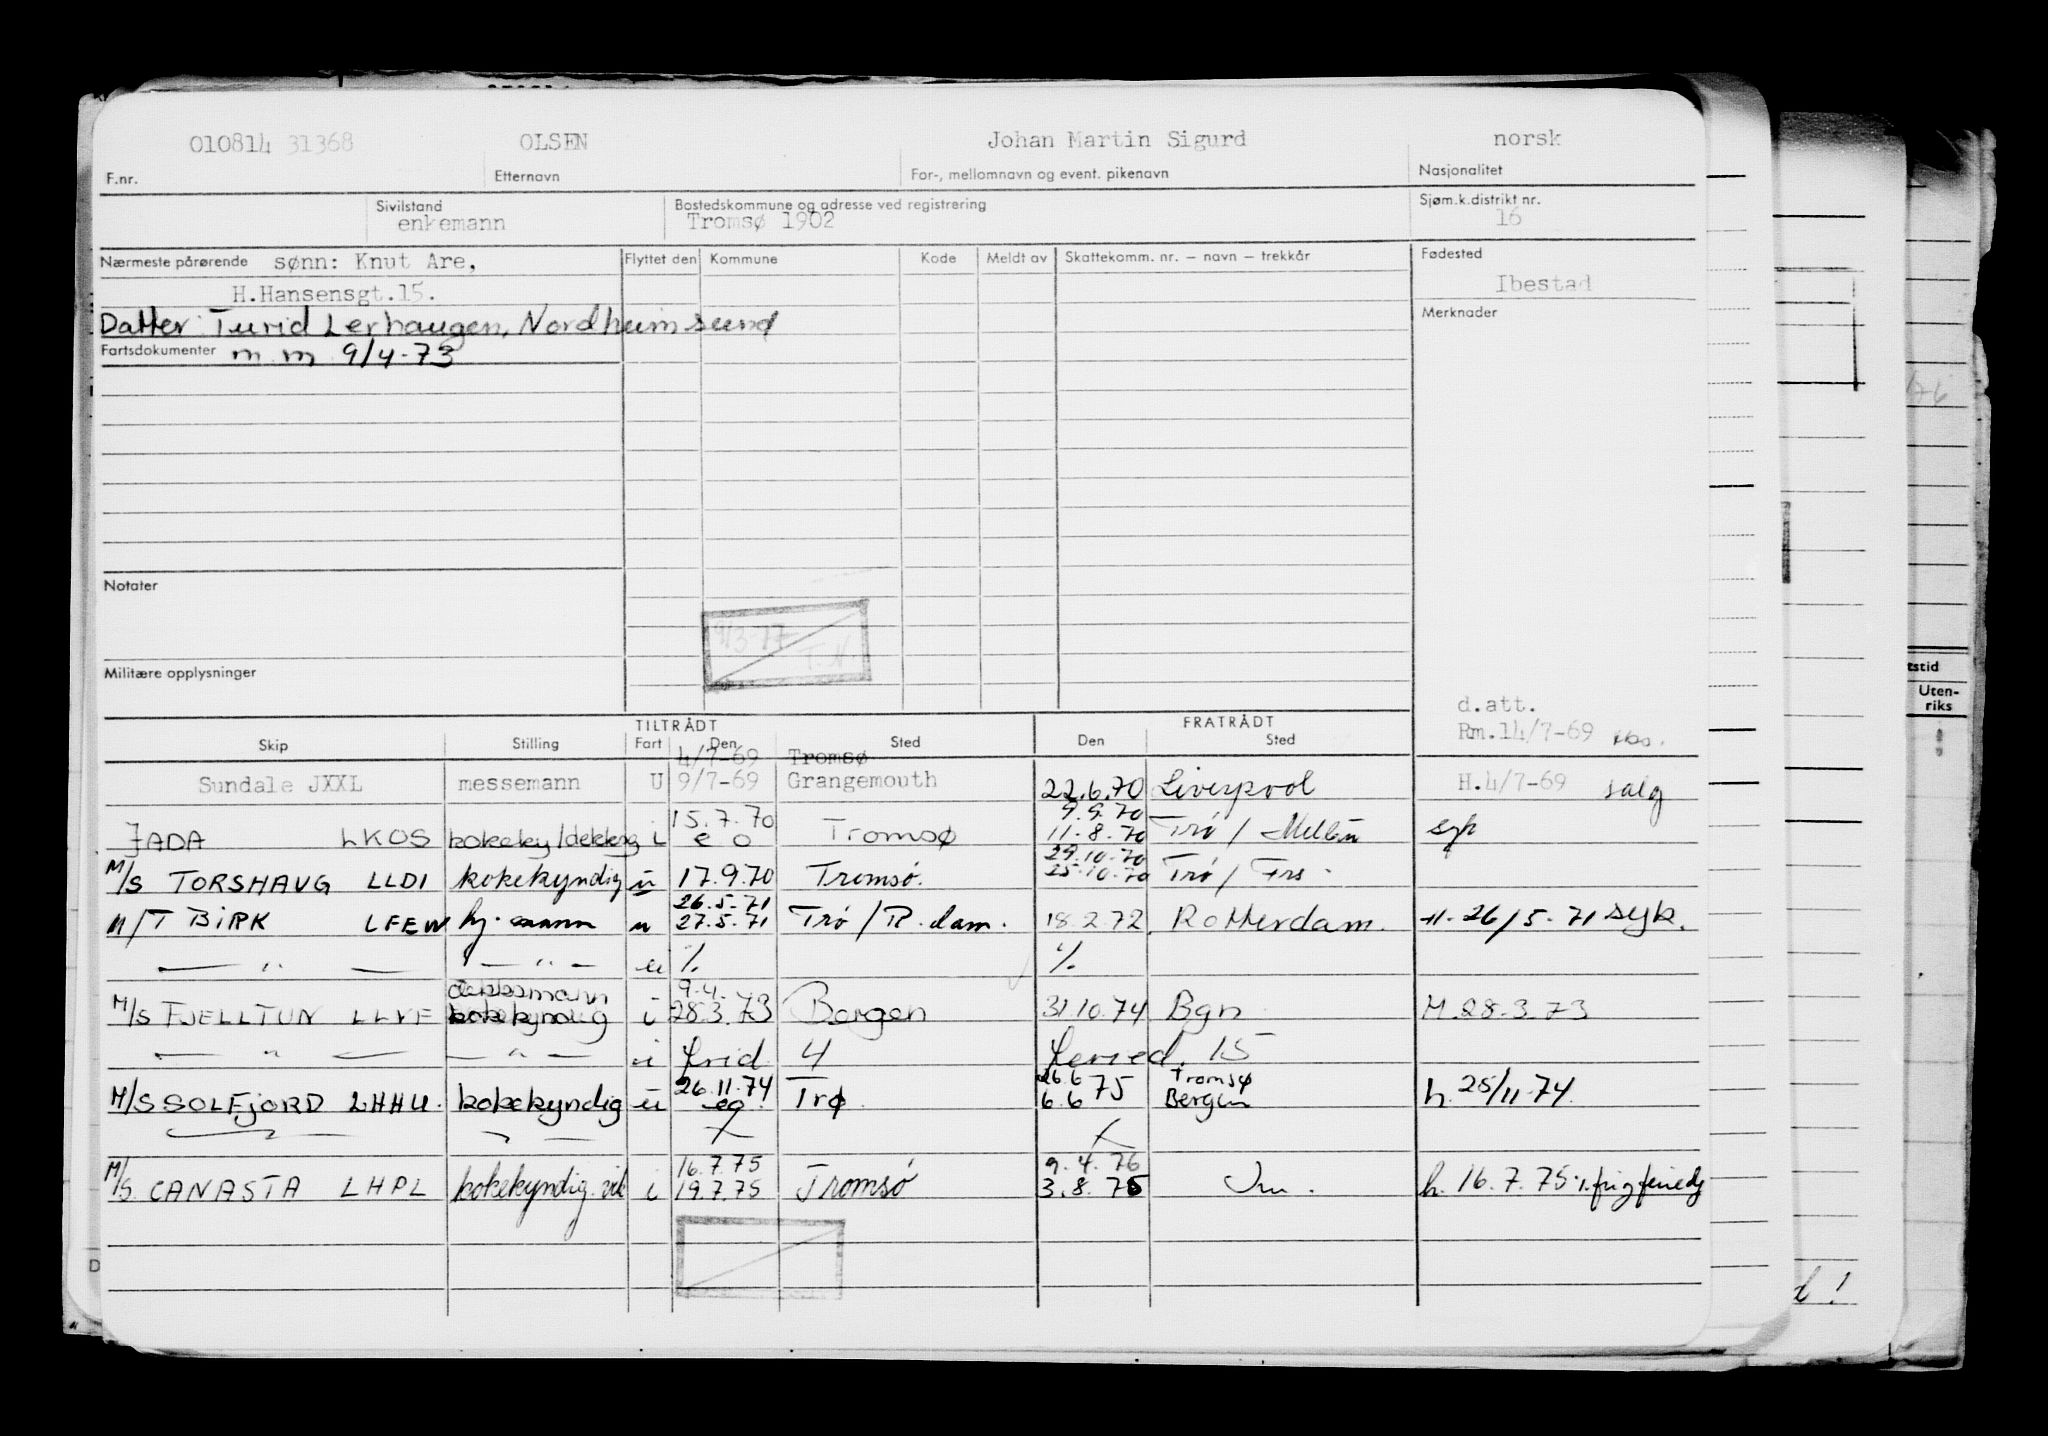 010814 31368 OLSEN Johan Martin Sigurd norsk
F.nr. Etternavn For-, mellomnavn og event. pikenavn Nasjonalitet
Sivilstand Bostedskommune og adresse ved registrering Sjøm.k.distrikt nr.
enkemann Tromsø 1902 16
Nærmeste pårørende sønn: Knut Are, Flyttet den Kommune Kode Meldt av Skattekomm. nr. – navn – trekkår Fødested
H.Hansensgt.15. Ibestad
Datter: Turid Lerhaugen, Nordheimsund Merknader
Fartsdokumenter m.m 9/4-73
Notater
9/3-77
T.N.
Militære opplysninger
d.att.
TILTRÅDT FRATRÅDT Rm.14/7-69
Skip Stilling Fart Den Sted Den Sted
4/7-69 Tromsø
Sundale JXXL messemann U 9/7-69 Grangemouth 22.6.70 Liverpool H.4/7-69 salg
15.7.70 9.9.70
JADA LKOS kokeky/ i e o Tromsø 11-8.70 Trø / syk
29.10.70
M/S TORSHAVG LLDI kokekyndig u 17.9.70 Tromsø. 25.10.70 Trø /
26.5.71
M/T BIRK LFEW hj. mann u 27.5.71 Trø / R.dam. 18.2.72 Rotterdam. H. 26/5.71 syk.
— " — — " — u % %
dekksmann 9.4.
M/S FJELLTUN LLVF kokekyndig i 28.3.73 Bergen 31.10.74 Bgn M.28.3.73
— " — — " — i frid. 4 15
26.11.74 26.6 75 Tromsø
M/S SOLFJORD LHHU. kokekyndig u Trø 6.6 Bergen h. 25/11-74.
16.7.75 9.4.76
M/S CANASTA LHPL kokekyndig. vik i 19.7.75 Tromsø 3.8.76 h. 16.7.75
tstid
Uten-
riks
D